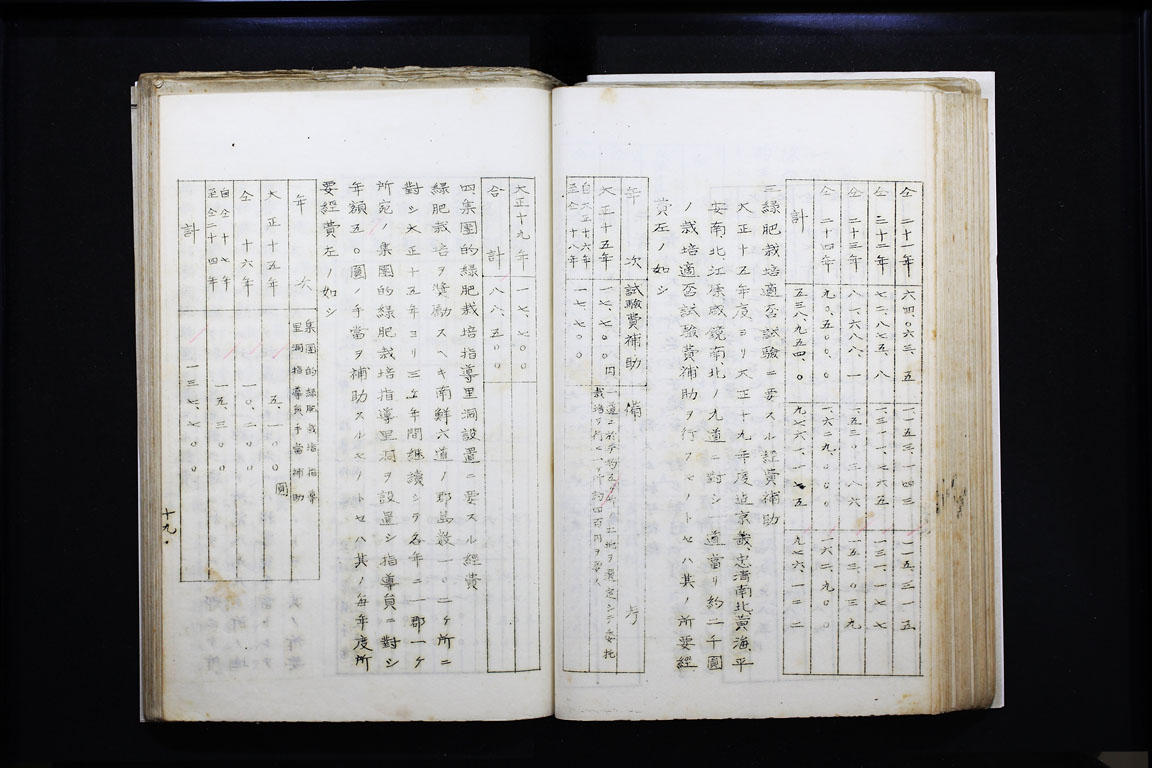 仝 二十一年 六四〇六三、五 一、一五三、一四三 一一五、三一五
仝 二十二年 七二、八七五、八 一、三一一、七六五 一三一、一七七
仝 二十三年 八一、六八八、一 一、五三〇、三八六 一五三、〇三九
仝 二十四年 九〇、五〇〇、〇 一、六二九、〇〇〇 一六二、九〇〇
計 五三八、九五四、〇 九、七六一、一七五 九七六、一二二
三 緑肥栽培適否試驗ニ要スル經費補助
大正十五年度ヨリ大正十九年度迄京畿、忠淸南北黃海平
安南北、江原咸鏡南、北ノ九道ニ對シ一道當リ約二千圓
ノ栽培適否試驗費補助ヲ行フモノトセハ其ノ所要經
費左ノ如シ
年次 試驗費補助 備考
大正十五年 一七、七〇〇円 一道ニ於テ約五ケ所ノ土地ヲ選定シテ委托
自大正十六年 至仝十八年 一七、七〇〇 栽培ヲ行ヒ一ケ所約四百円ヲ要ス
大正十九年 一七、七〇〇
合計 八八、五〇〇
四 集團的緑肥栽培指導里洞設置ニ要スル經費
緑肥栽培ヲ奬勵スヘキ南鮮六道ノ郡島數一〇二ケ所ニ
對シ大正十五年ヨリ三ケ年間継續シテ各年ニ一郡一ケ
所宛ノ集團的緑肥栽培指導里洞ヲ設置シ指導員ニ對シ
年額五〇圓ノ手當ヲ補助スルモノトセハ其ノ每年度所
要經費左ノ如シ
年次 集團的緑肥栽培指導里洞指導員手當補助
大正十五年 五、一〇〇圓
仝 十六年 一〇、二〇〇
自仝十七年 至仝二十四年 一五、三〇〇
計 一三七、七〇〇
十九.